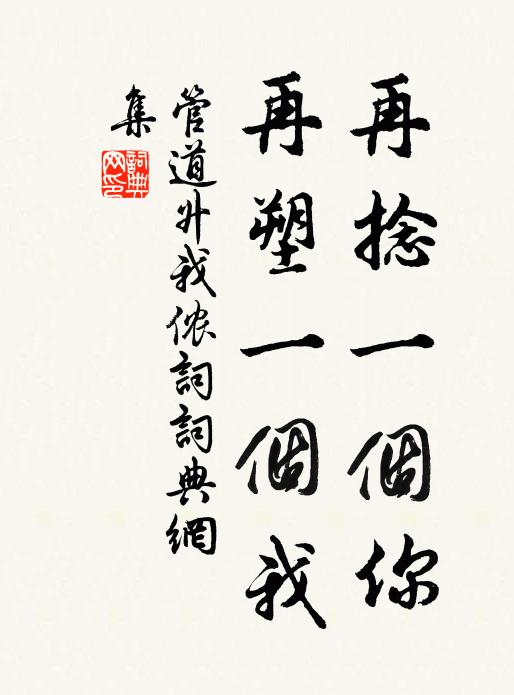 再捻一個你
再塑一個我
管道外我侬詞詞典網
集
詞典
网印